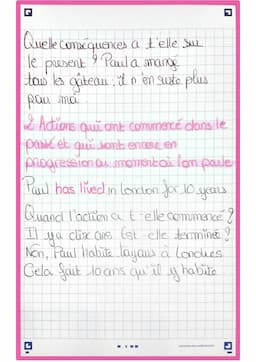 Quelle conséquences a t'elle sur
le present ? Paul a mangé
tous les gâteau, il n'en reste plus
pour ma
2 Actions qui ont commencé dans le
passé et qui sont encore en
progression au moment où l'on parle
Paul has lived in London for 10 years
Quand l'action a t-elle commencé ?
Il y a dix ans Est-elle terminée ?
Non, Paul habite toujours à Londres
Cela fait 10 ans qu'il y habite